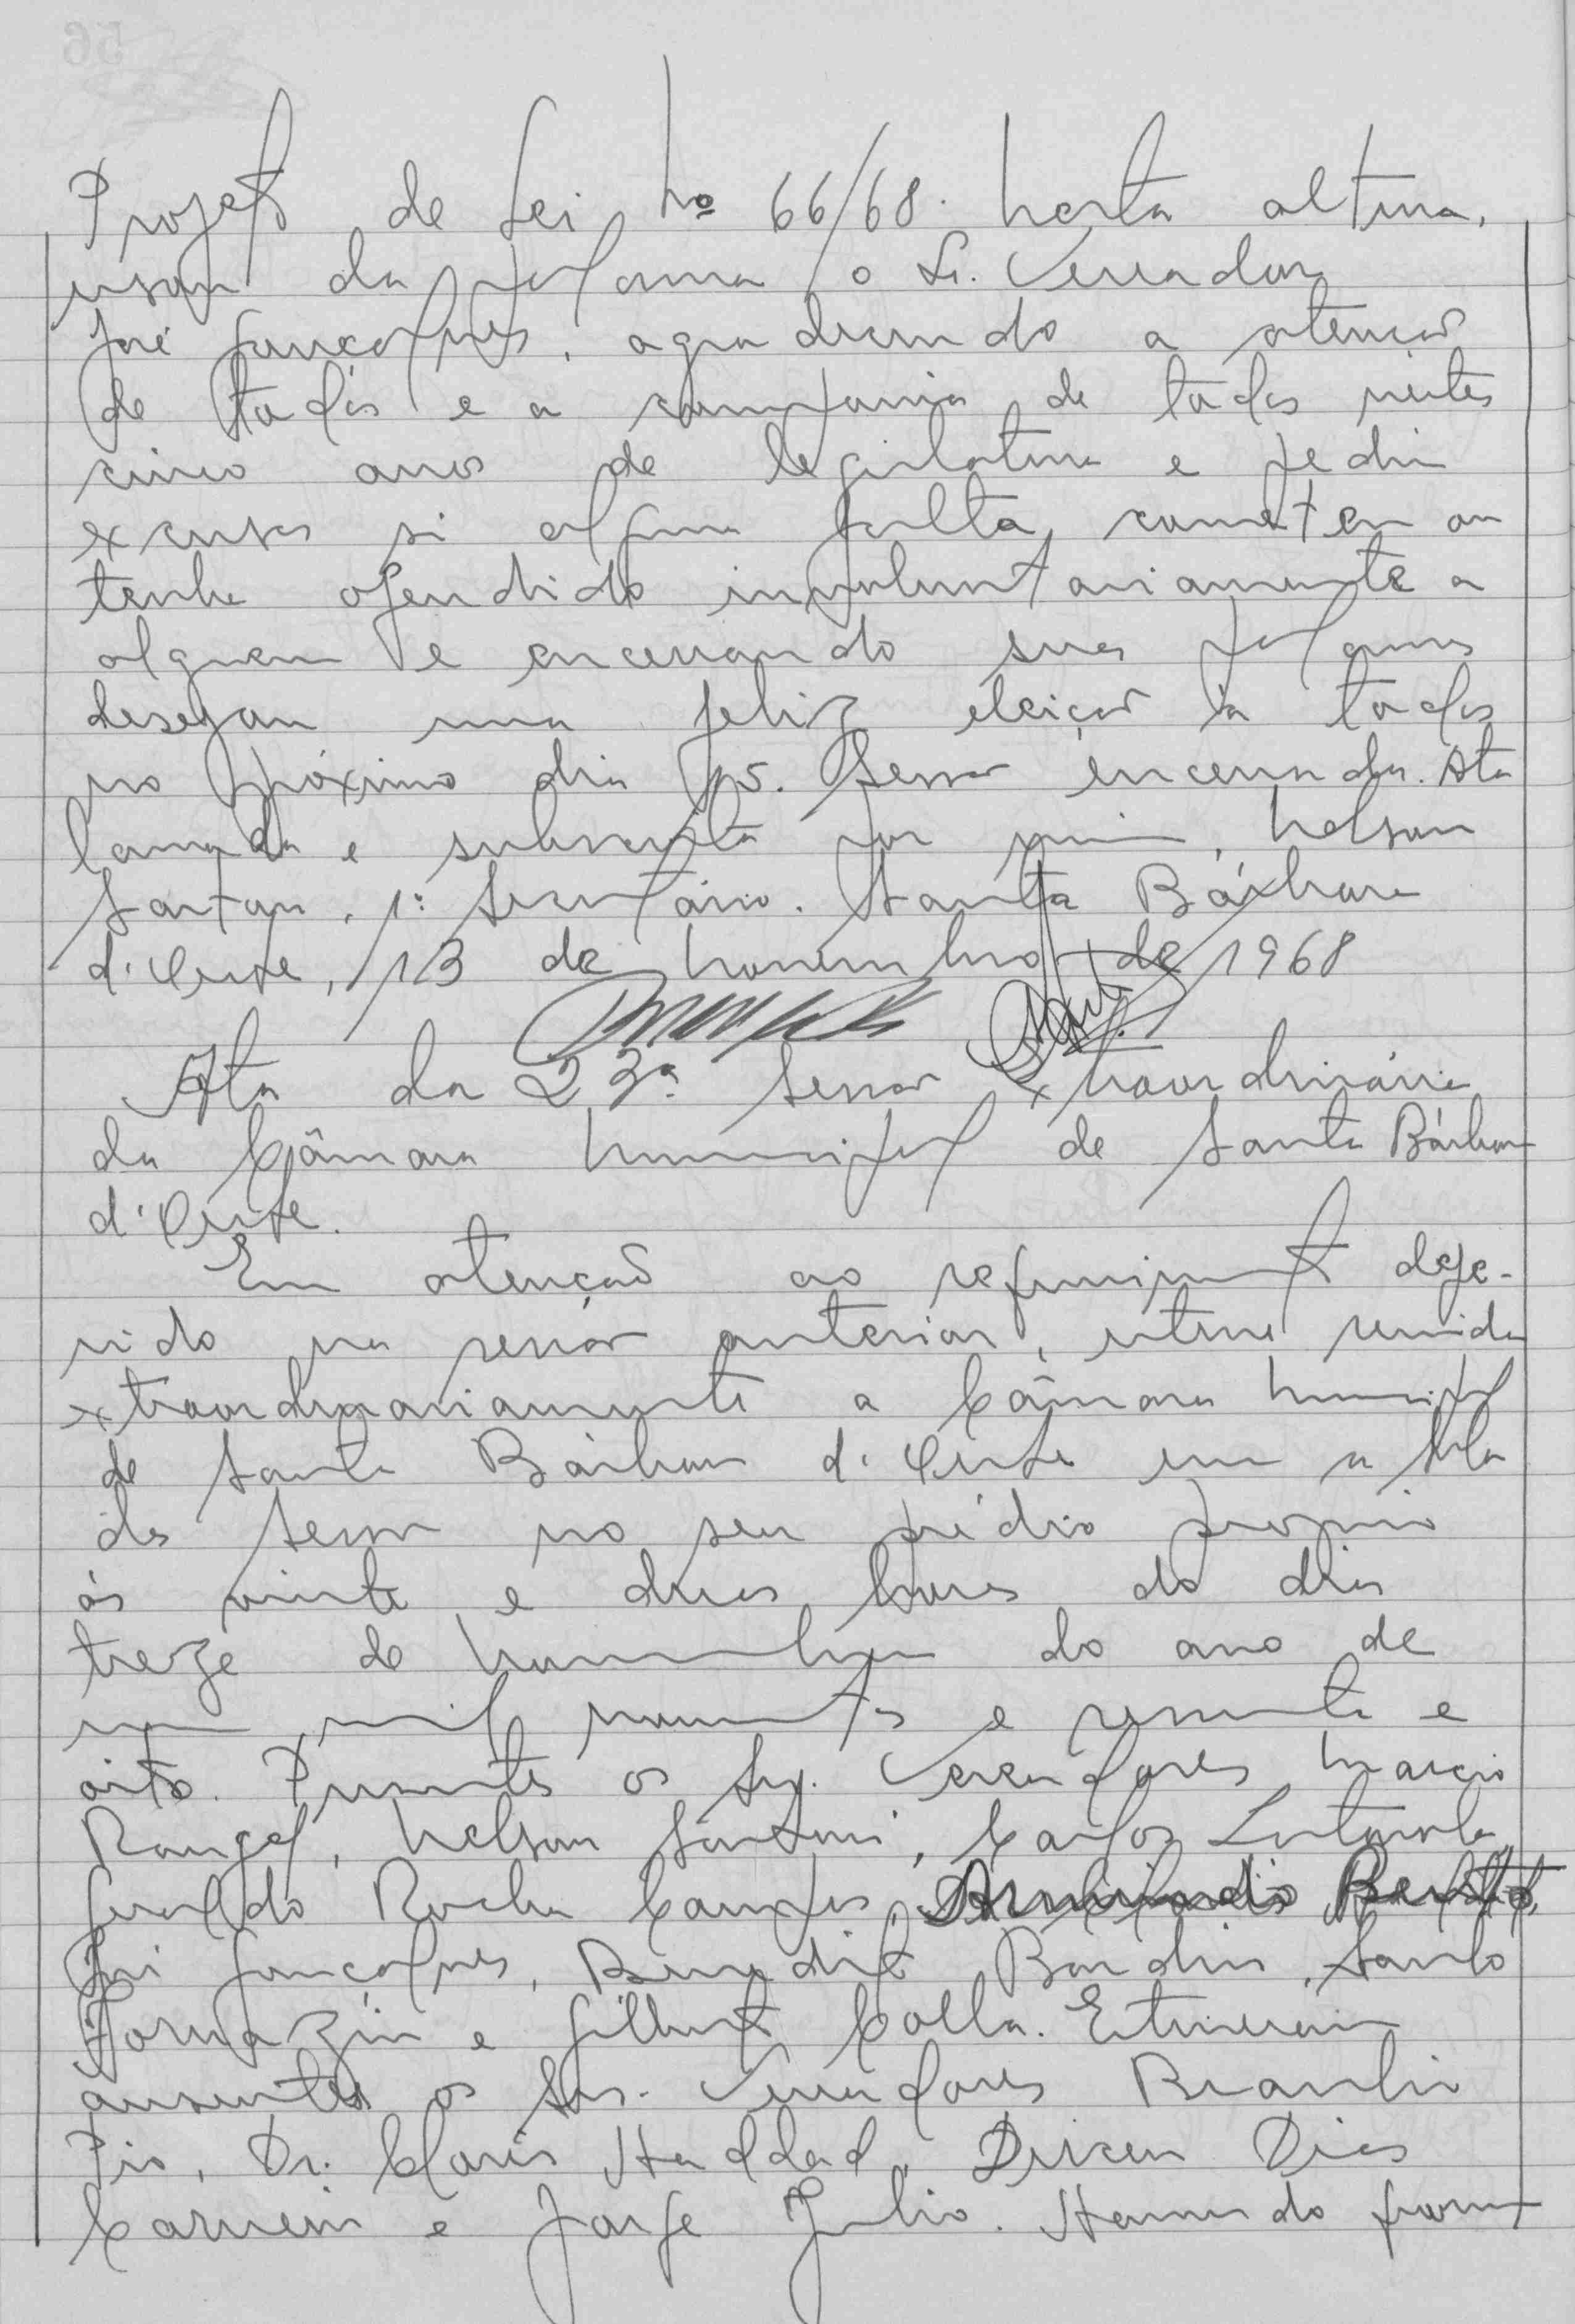 Projeto de Lei nº 66/68. Nesta altura,
usou da palavra o Sr. Vereador
José Gonçalves, agradecendo a atenção
de todos e a companhia de todos nestes
cinco anos de legislatura e pediu
excusas si alguma falta cometeu ou
tenha ofendido involuntariamente a
alguem e encerrando suas palavras
desejou uma feliz eleição à todos
no próximo dia 15. Sessão encerrada. Ata
lavrada e subscrita por mim, Nelson
Sartori, 1º Secretário. Santa Bárbara
d'Oeste, 13 de Novembro de 1968
Ata da 23ª Sessão Extraordinária
da Câmara Municipal de Santa Bárbara
d'Oeste.
Em atenção ao requerimento defe-
rido na sessão anterior, esteve reunida
extraordinariamente a Câmara Municipal
de Santa Bárbara d'Oeste em a sala
das sessões no seu prédio proprio
às vinte e duas horas do dia
treze de Novembro do ano de
um mil novecentos e sessenta e
oito. Presentes os Srs. Vereadores Marcio
Rangel, Nelson Sartori, Carlos
Geraldo Rocha Campos,
José Gonçalves, Benedito Bardin, Santo
Fornazin e Gilberto Colla. Estiveram
ausentes os Srs. Vereadores Braulio
Pio, Dr. Clovis Haddad, Dirceu Dias
Carneiro e Jorge Julio. Havendo